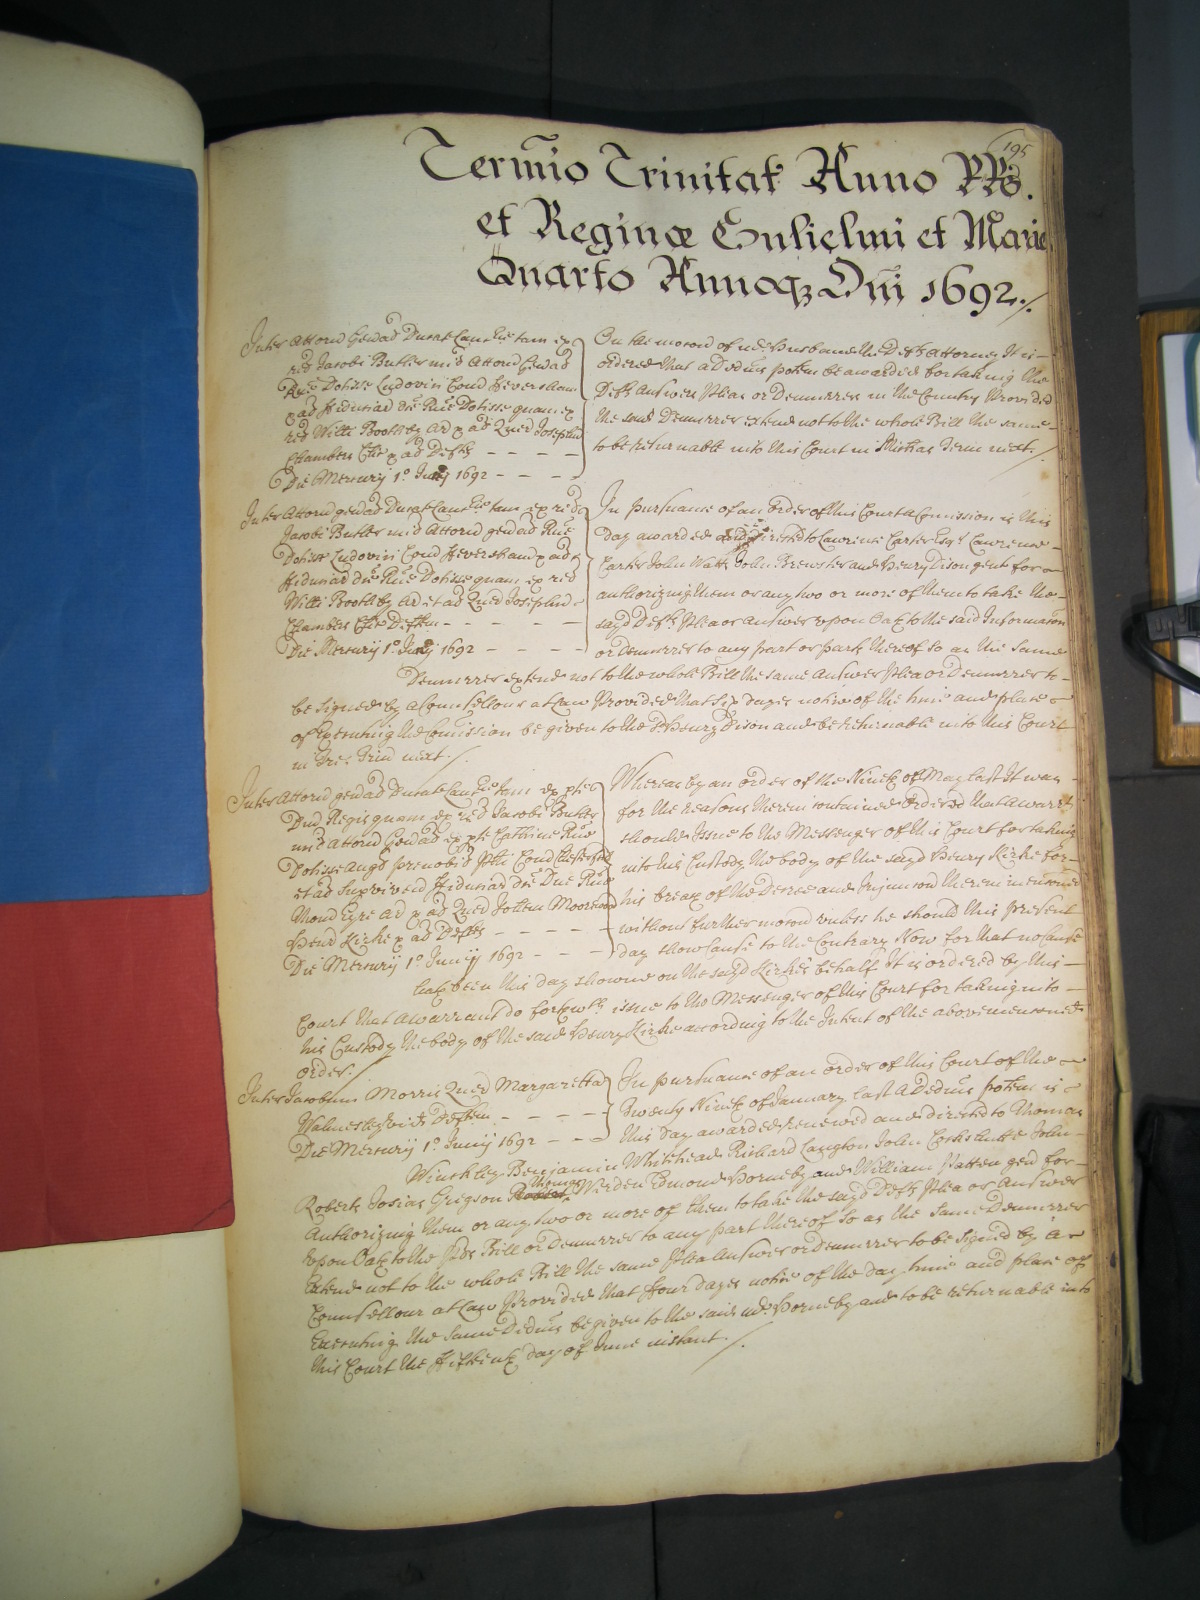 195
Termio Trinitat Anno RRs.
et Reginæ Gulielmi et Marie
Quarto Annoqz Dni 1692./
Inter Attorn gen̄ad Ducat Lanc tam ex
red Jacobi Butler Attorn gen̄ad
Dotisse Ludovici Comd Feversham
Dotisse quam ex
red Willi Boothby Ar Quer Joseph
Chambers Defts
Die Mercurij 1º Junij 1692
On the motion of Husband the Defts Attorney It is
ordered that a Dedus potem be awarded for taking the
Defts Answer Plea or Demurrer in the Country Provided
the said Demurrer extend not to the whole Bill the same
to be returnable into this Court in Michas Term next./
Inter Attorn gen̄ad Ducat Lanc tam ex red
Jacobi Butler Attorn gen̄ad
Dotisse Ludovici Comd Feversham
Dotisse quam ex red
Willi Boothby Ar et ad Quer Joseph
Chambers Deftem
Die Mercurij 1º Junij 1692
In pursuance of an order of this Court a Comission is this
day awarded directed to Lawrence Carter Esqr Lawrence
Carter John Watts John Brewster and Henry Dison gent for
authorizing them or any two or more of them to take the
sayd Defts Plea or Answer upon Oath to the said Information
or Demurrer to any part or parts thereof so as the same
Demurrer extend not to the whole Bill the same Answer Plea or Demurrer to
be signed by a Counsellour at Law Provided that Six dayes notice of the time and place
of Executing the Comission be given to the Henry Dison and be returnable into this Court
in next./
Inter Attorn gen̄ad Ducat Lanc tam ex pte
Dni Regis quam ex red Jacobi Butler
Attorn Gen̄ad ex pte Catherine
Dotisse Angl
et ad
Eyre Ar Quer
Henr Kirke Defts
Die Mercurij 1º Junij 1692
Whereas by an order of the Nineth of May last It was
for the reasons therein contained Ordered that a warrt
should Issue to the Messenger of this Court for taking
into his Custody the body of the sayd Henry Kirke for
his breach of the Decree and Injuncon therein mencioned
without further motion unless he should this present
day show Cause to the Contrary Now for that no Cause
hath been this day showne on the sayd Kirkes behalf It is ordered by this
Court that a warrant do forthwth issue to the Messenger of this Court for taking into
his Custody the body of the said Henry Kirke according to the Intent of the abovemenconed
order./
Inter Jacobum Morris Quer Margaretta
Walmesley Deftem
Die Mercurij 1º Junij 1692
In pursuance of an order of this Court of the
Twenty Nineth of January last A Dedus potem is
this day awarded renewed and directed to Thomas
Winckley Benjamin Whitehead Richard Langton John Cockshutte John
Roberts Josias Gregson Thomas Werden Edmond Hornby and William Patten gen for
Authorizing them or any two or more of them to take the sayd Defts Plea or Answer
upon Oath to the Bill or Demurrer to any part thereof So as the same Demurrer
extend not to the whole Bill the same Plea Answer or Demurrer to be Signed by a
Counsellour at Law Provided that Four dayes notice of the day time and place of
Executing the same Dedus be given to the said Hornby and to be returnable into
this Court the Fifteenth day of June instant./